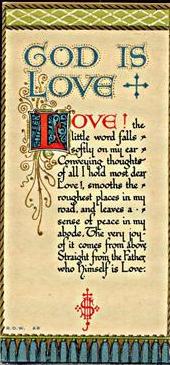 GOD IS
LOVE
LOVE! the
little word falls
softly on my ear
Conveying thoughts
of all I hold most dear
Love!, smooths the
roughest places in my
road, and leaves a
sense of peace in my
abode. The very joy
of it comes from above
Straight from the Father,
who Himself is Love: